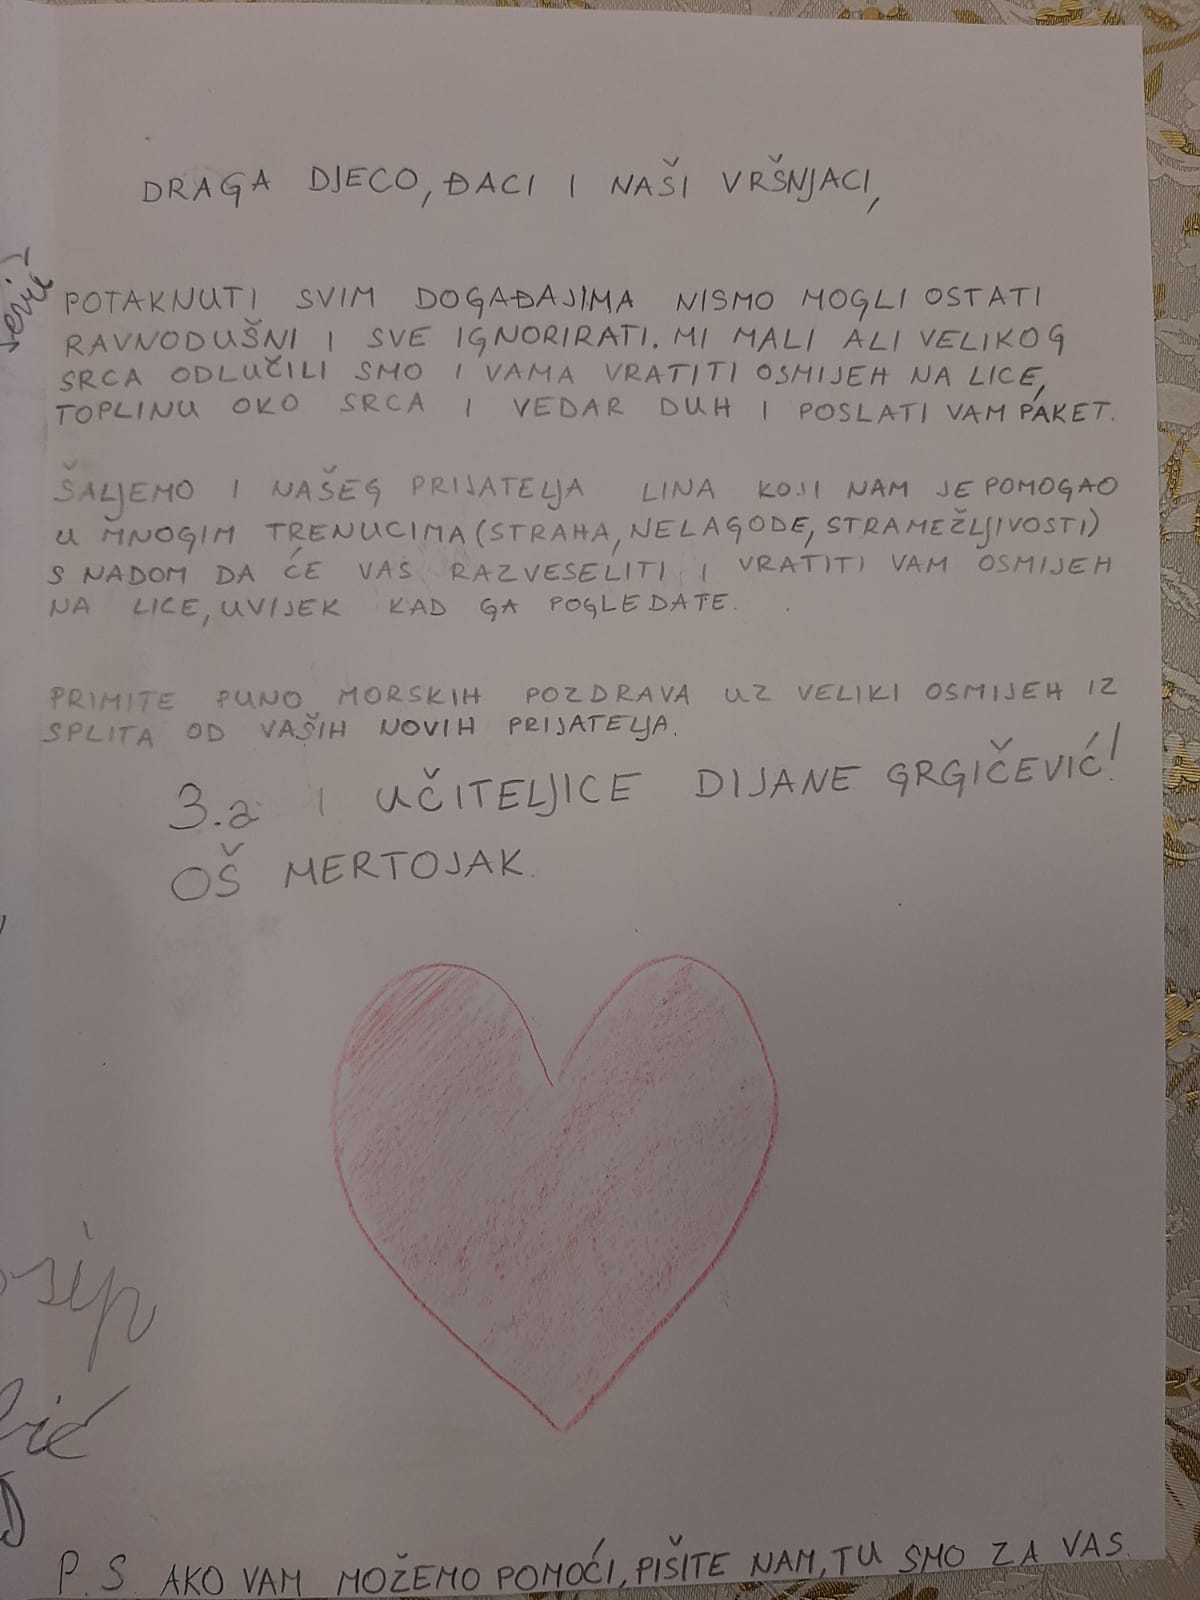 DRAGA DJECO, ĐACI I NAŠI VRŠNJACI,
POTAKNUTI SVIM DOGAĐAJIMA NISMO MOGLI OSTATI
RAVNODUŠNI I SVE IGNORIRATI. MI MALI ALI VELIKOG
SRCA ODLUČILI SMO I VAMA VRATITI OSMIJEH NA LICE,
TOPLINU OKO SRCA I VEDAR DUH I POSLATI VAM PAKET.
ŠALJEMO I NAŠEG PRIJATELJA LINA KOJI NAM JE POMOGAO
U MNOGIM TRENUCIMA (STRAHA, NELAGODE, STRAMEŽLJIVOSTI)
S NADOM DA ĆE VAS RAZVESELITI I VRATITI VAM OSMIJEH
NA LICE, UVIJEK KAD GA POGLEDATE.
PRIMITE PUNO MORSKIH POZDRAVA UZ VELIKI OSMIJEH IZ
SPLITA OD VAŠIH NOVIH PRIJATELJA.
3.a I UČITELJICE DIJANE GRGIČEVIĆ!
OŠ MERTOJAK.
P.S. AKO VAM MOŽEMO POMOĆI, PIŠITE NAM, TU SMO ZA VAS.